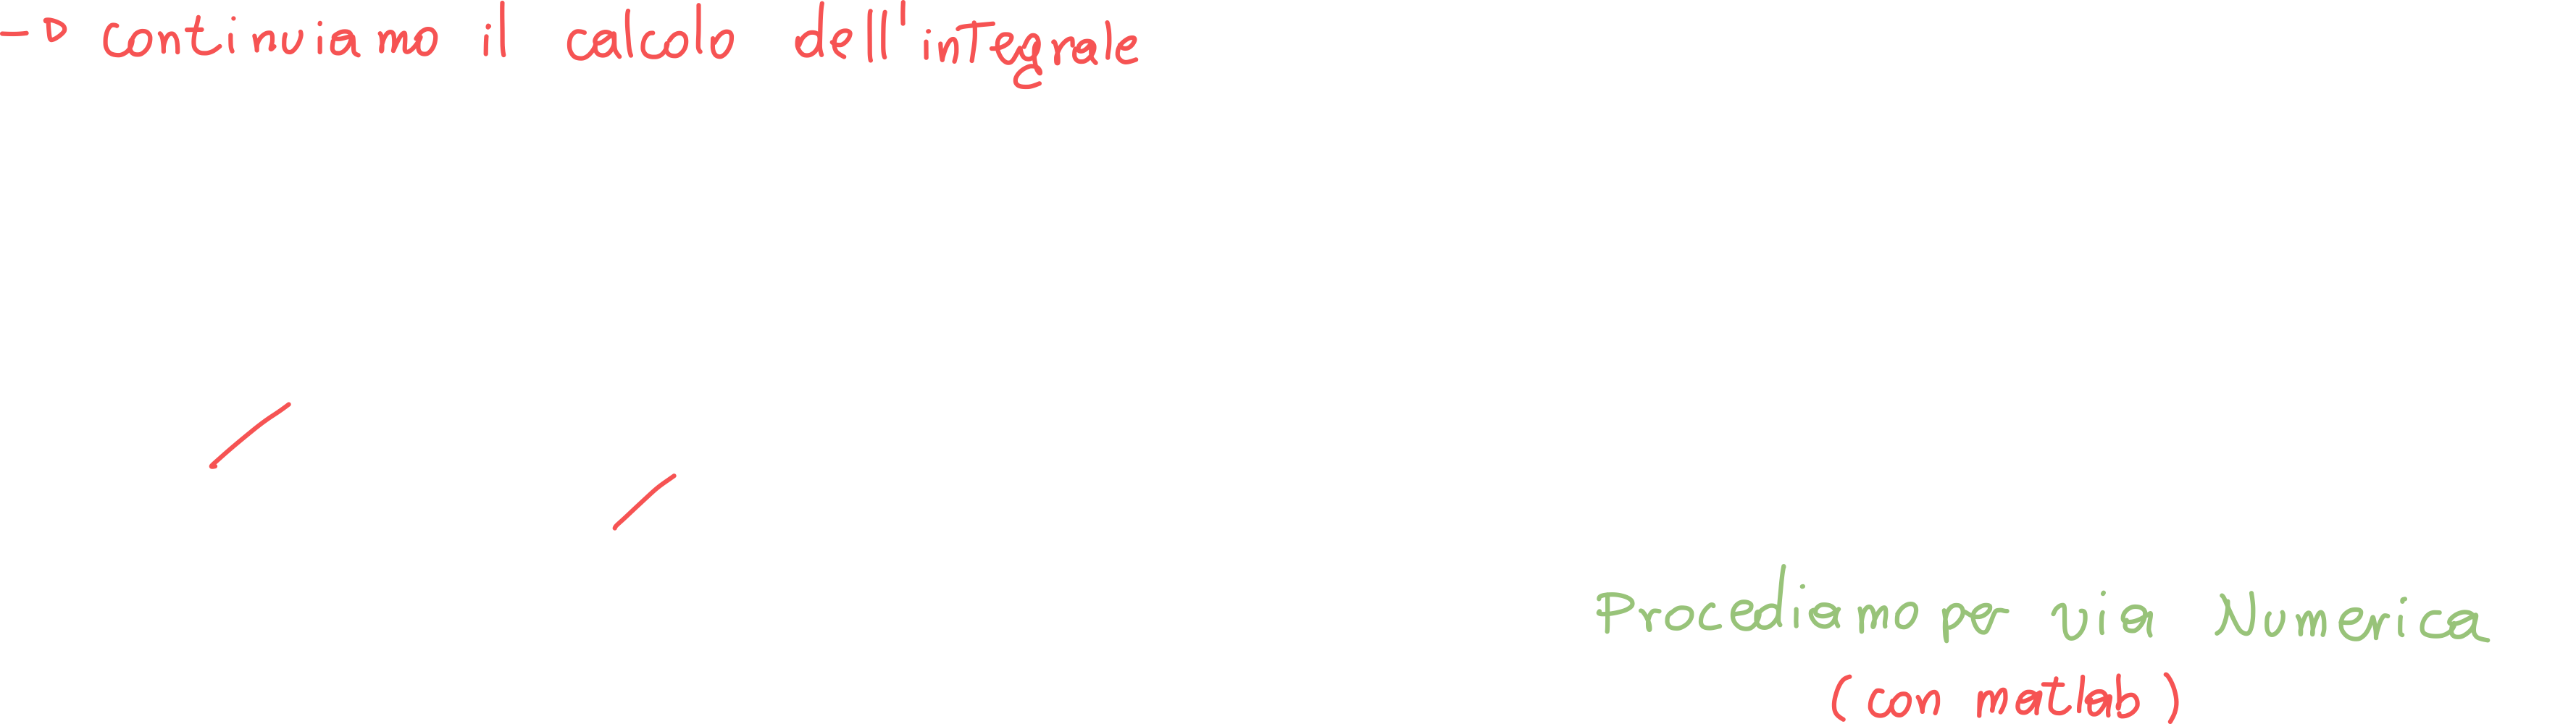 → continuiamo il calcolo dell'integrale
Procediamo per via Numerica
(con matlab)